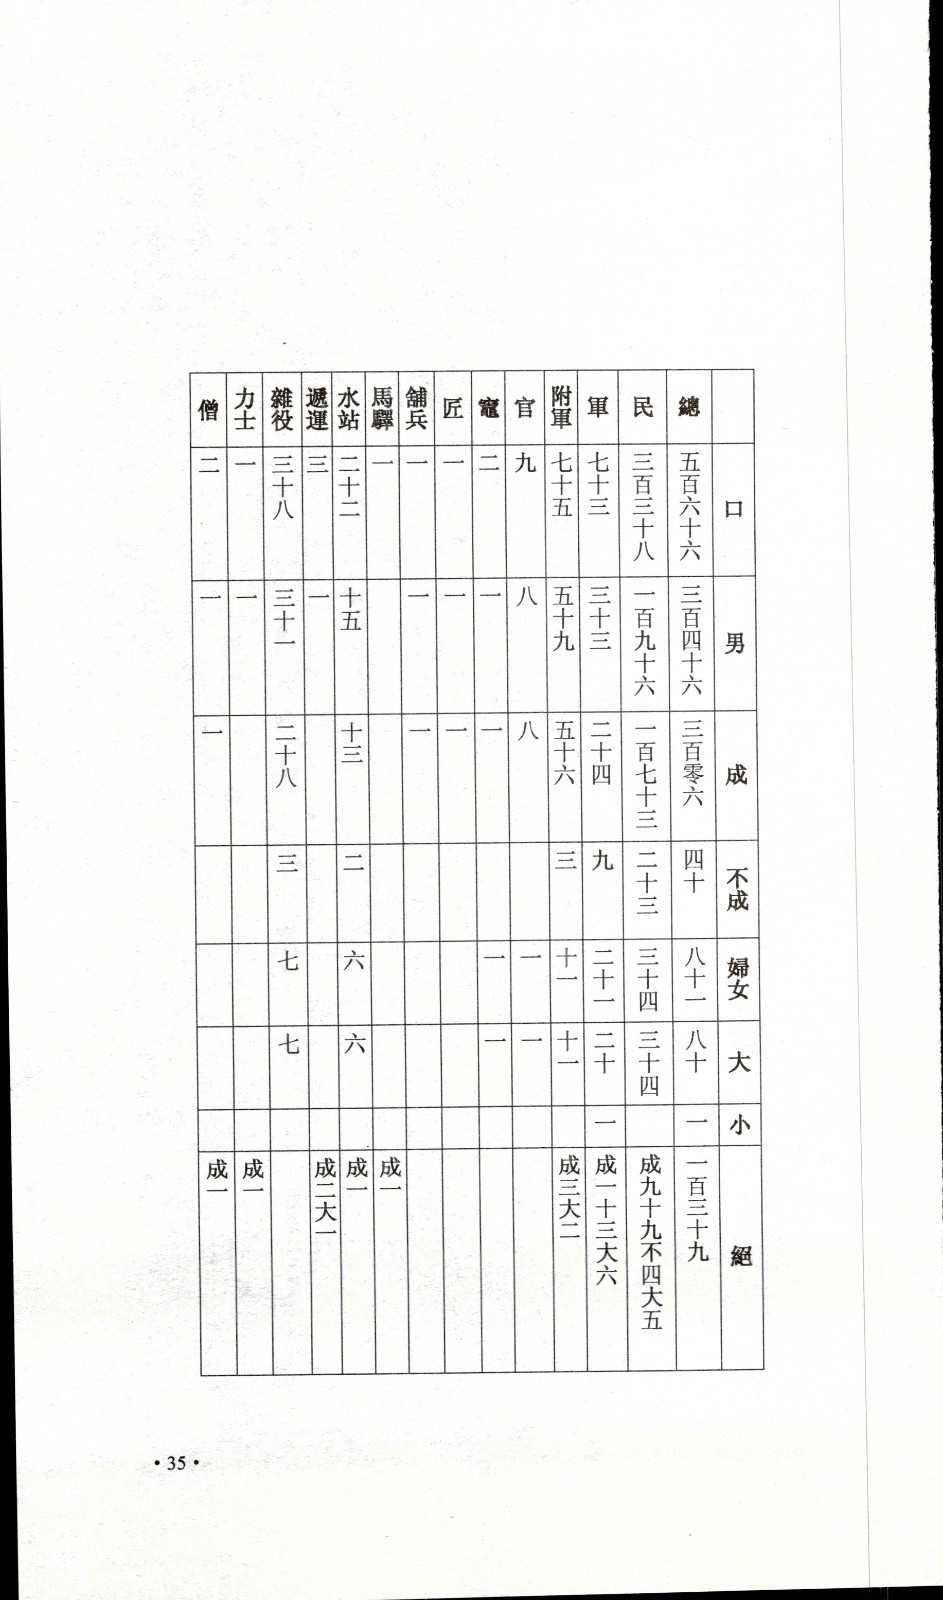 口 男 成 不成 婦女 大 小 絕
總 五百六十六 三百四十六 三百零六 四十 八十一 八十 一 一百三十九
民 三百三十八 一百九十六 一百七十三 二十三 三十四 三十四 成九十九不四大五
軍 七十三 三十三 二十四 九 二十一 二十 一 成一十三大六
附軍 七十五 五十九 五十六 三 十一 十一 成三大二
官 九 八 八 一 一
竈 二 一 一 一 一
匠 一 一 一
舖兵 一 一 一
馬驛 一 成一
水站 二十二 十五 十三 二 六 六 成一
遞運 三 一 成二大一
雜役 三十八 三十一 二十八 三 七 七
力士 一 一 成一
僧 二 一 一 成一
• 35 •